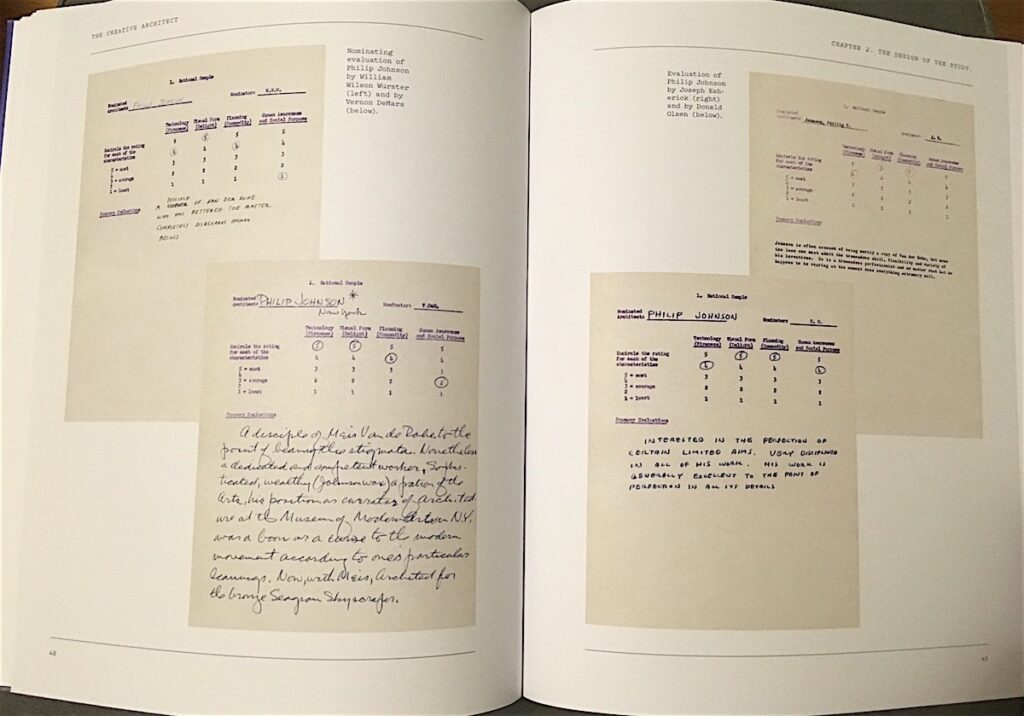 THE CREATIVE ARCHITECT
Nominating
evaluation of
Philip Johnson
by William
Wilson Wurster
(left) and by
Vernon DeMars
(below).
1. National Sample
Nominated
Architect:
Nominator: W.W.W.
Technology Visual Form Planning Human Awareness
(Firmness) (Delight) (Commodity) and Social Purpose
5 5 5 5
Encircle the rating 4 4 4 4
for each of the 3 3 3 3
characteristics 2 2 2 2
5 = most 1 1 1 1
4
3 = average
2
1 = least
Summary Evaluations
DISCIPLE
A OF VAN DER ROHE
WHO HAS BETTERED THE MASTER
COMPLETELY DISREGARDS HUMAN
BEINGS
1. National Sample
Nominated
Architect: PHILIP JOHNSON *
New York
Nominator: V DeM.
Technology Visual Form Planning Human Awareness
(Firmness) (Delight) (Commodity) and Social Purpose
Encircle the rating 5 5 5 5
for each of the 4 4 4 4
characteristics
5 = most 3 3 3 3
4
3 = average 2 2 2 2
2
1 = least 1 1 1 1
Summary Evaluations
A disciple of Meis Van de Rohe to the
point of bearing the stigmata. Nonetheless
a dedicated and competent worker, Sophis-
ticated, wealthy (Johnson wax) a patron of the
Arts, his position as currator of Architect
ure at the Museum of Modern Art in N.Y.
was a boon or a curse to the modern
movement according to one's particular
leanings. Now, with Meis, Architect for
the bronze Seagram Skyscraper.
48
CHAPTER 2. THE DESIGN OF THE STUDY
Evaluation of
Philip Johnson
by Joseph Esh-
erick (right)
and by Donald
Olsen (below).
1. National Sample
Nominated
Architect: Johnson, Philip C.
Nominator: J. E.
Technology Visual Form Planning Human Awareness
(Firmness) (Delight) (Commodity) and Social Purpose
Encircle the rating 5 5 5 5
for each of the 4 4 4 4
characteristics
5 = most 3 3 3 3
4
3 = average 2 2 2 2
2
1 = least 1 1 1 1
Summary Evaluations
Johnson is often accused of being merely a copy of Van der Rohe, but none
the less one must admit the tremendous skill, flexibility and variety of
his inventions. He is a tremendous perfectionist and no matter what he
happens to be working at the moment does everything extremely well.
1. National Sample
Nominated
Architect: PHILIP JOHNSON
Nominator: D. O.
Technology Visual Form Planning Human Awareness
(Firmness) (Delight) (Commodity) and Social Purpose
Encircle the rating 5 5 5 5
for each of the 4 4 4 4
characteristics
5 = most 3 3 3 3
4
3 = average 2 2 2 2
2
1 = least 1 1 1 1
Summary Evaluations
INTERESTED IN THE PERFECTION OF
CERTAIN LIMITED AIMS. VERY DISCIPLINED
IN ALL OF HIS WORK. HIS WORK IS
GENERALLY EXCELLENT TO THE POINT OF
PERFECTION IN ALL ITS DETAILS